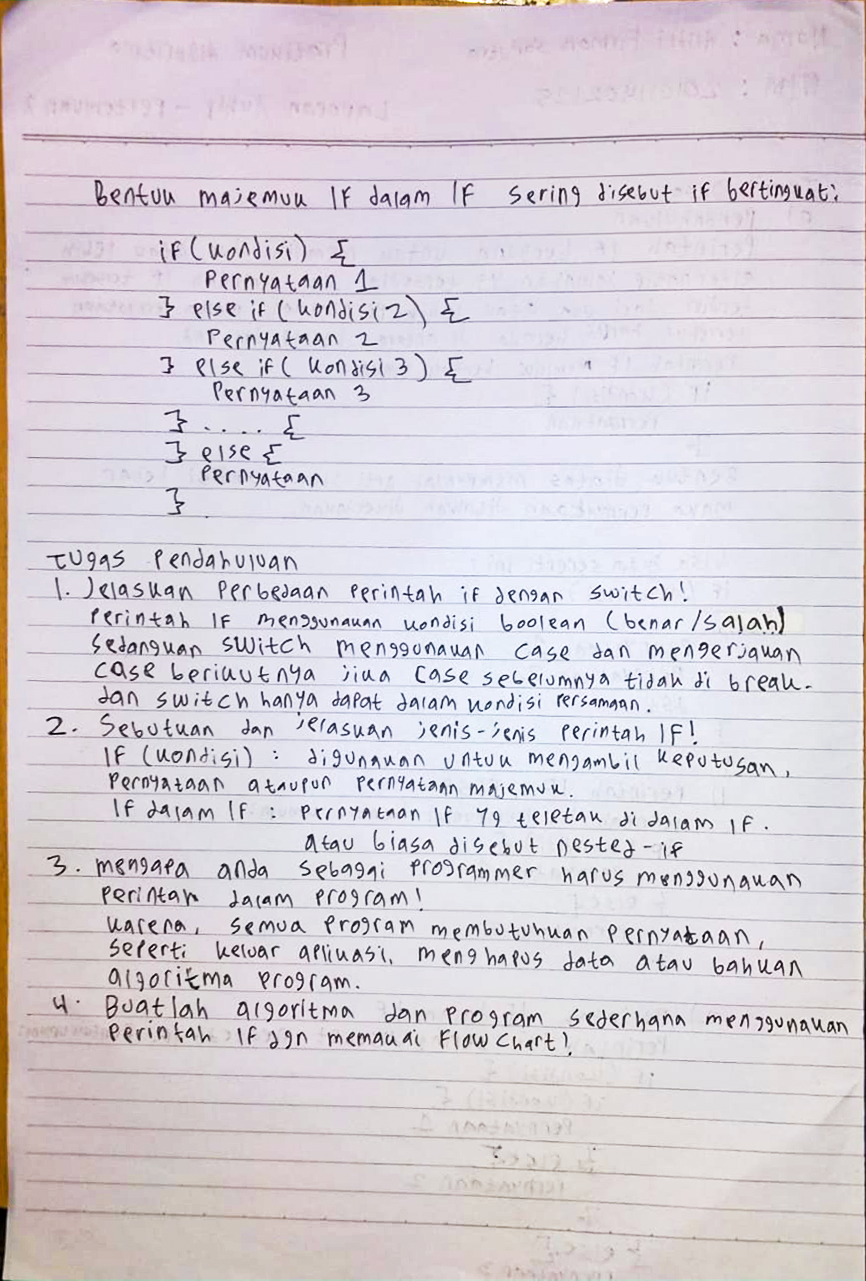 Bentuk majemuk IF dalam IF sering disebut if bertingkat:
if (kondisi) {
Pernyataan 1
} else if (kondisi 2) {
Pernyataan 2
} else if (kondisi 3) {
Pernyataan 3
} .... {
} else {
Pernyataan
}
Tugas Pendahuluan
1. Jelaskan Perbedaan Perintah if dengan switch!
Perintah IF menggunakan kondisi boolean (benar/salah)
Sedangkan switch menggunakan case dan mengerjakan
case berikutnya jika case sebelumnya tidak di break.
dan switch hanya dapat dalam kondisi persamaan.
2. Sebutkan dan jelaskan jenis-jenis perintah IF!
IF (kondisi) : digunakan untuk mengambil keputusan,
Pernyataan ataupun Pernyataan majemuk.
If dalam IF : Pernyataan IF yg teletak di dalam IF.
atau biasa disebut nested-if
3. mengapa anda sebagai Programmer harus menggunakan
Perintah dalam Program!
karena, semua Program membutuhkan Pernyataan,
seperti keluar aplikasi, menghapus data atau bahkan
algoritma program.
4. Buatlah algoritma dan Program sederhana menggunakan
Perintah If dgn memakai FlowChart!